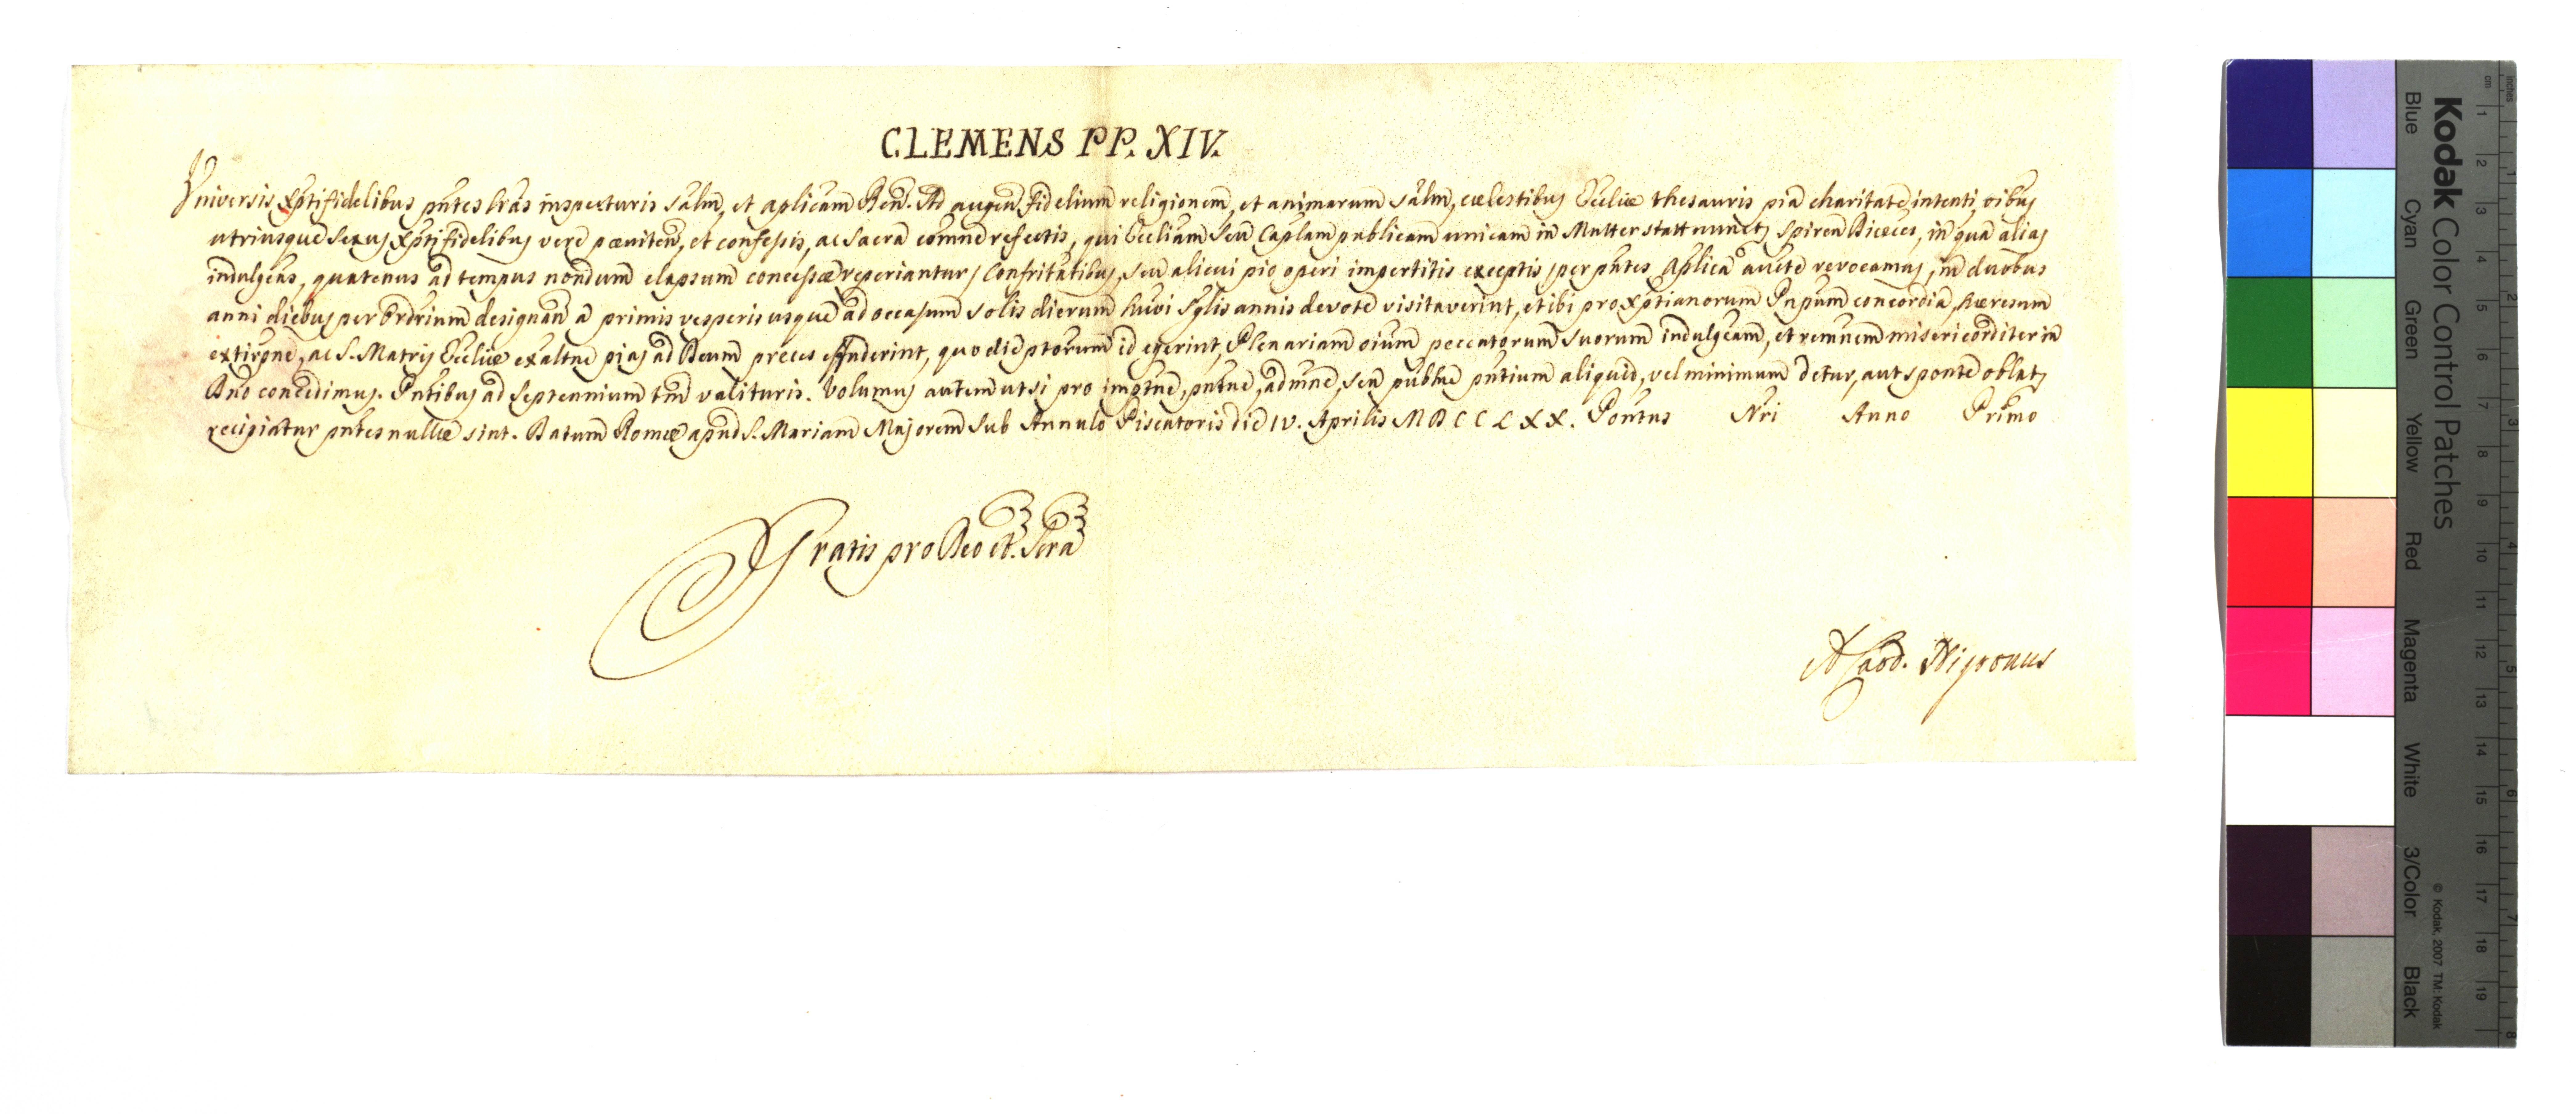 CLEMENS PP. XIV.
Universis Xptifidelibus pntes lras inspecturis Salm, et aplicam Ben. Ad augen. fidelium religionem, et animarum salm, cælestibus Eccliæ thesauris pia charitate intenti oibus
utriusque sexus Xptifidelibus vere pœniten, et confessis, ac sacra comne refectis, qui Eccliam seu Caplam publicam unicam in Mutterstatt nunctj Spiren Diœces, in qua aliaj
indulgeas, quatenus ad tempus nondum elapsum concessæ reperiantur, Confritatibus, seu alicui pio operi impertitis exceptis, per pntes Aplica aucte revocamus, in duobus
anni diebus per Ordrium designan a primis vesperis usque ad occasum solis dierum huoi sglis annis devote visitaverint, et ibi pro Xptianorum Pnpum concordia, hæresum
extirpne, ac S. Matris Eccliæ exaltne pias ad Deum preces effuderint, quo die ptorum id egerint, Plenariam oium peccatorum suorum indulgeam, et remnem misericorditer in
Dno concedimus. Pntibus ad septennium tm valituris. Volumus autem ut si pro impne, pntne, admne, seu publne pntium aliquid, vel minimum detur, aut sponte oblatz
recipiatur pntes nullæ sint. Datum Romæ apud S. Mariam Majorem sub Annulo Piscatoris die IV. Aprilis MDCCLXX. Pontus Nri Anno Primo
Gratis pro Deo et Scra
A Card. Nigronus
Kodak Color Control Patches
Blue Cyan Green Yellow Red Magenta White 3/Color Black
© Kodak, 2007 TM: Kodak
cm 1 2 3 4 5 6 7 8 9 10 11 12 13 14 15 16 17 18 19
inches 1 2 3 4 5 6 7 8